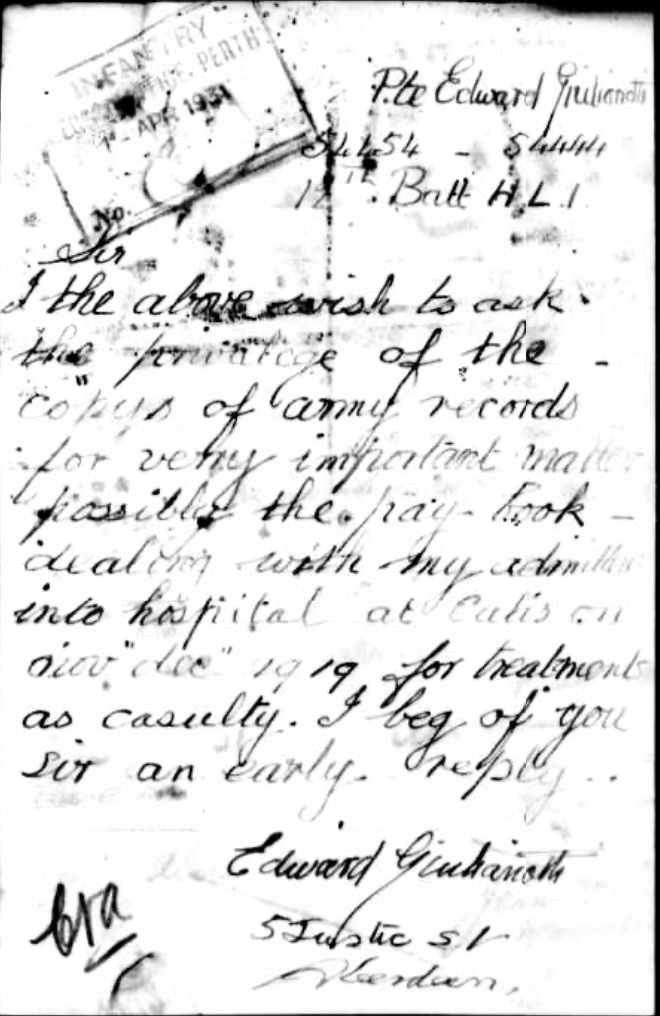 INFANTRY
OFFICE, PERTH
APR 1931
No.
Pte Edward Giulianotti
54454 - 54444
12th Batt H.L.I.
Sir
I the above wish to ask
the privalege of the -
copys of army records
for verry important matter
possibly the pay-book -
dealing with my admittance
into hospital at Calis on
nov" dec" 1919 for treatments
as casulty. I beg of you
Sir an early reply..
Edward Giulianotti
5 Justic St
Aberdeen.